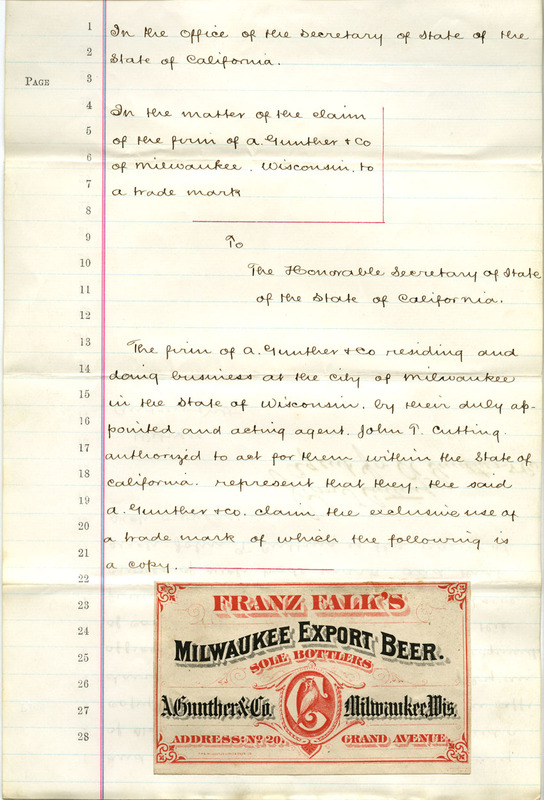 1 In the Office of the Secretary of State of the
2 State of California.
PAGE 3
4 In the matter of the claim
5 of the firm of A. Gunther & Co
6 of Milwaukee, Wisconsin, to
7 a trade mark
8
9 To
10 The Honorable Secretary of State
11 of the State of California.
12
13 The firm of A. Gunther & Co residing and
14 doing business at the City of Milwaukee
15 in the State of Wisconsin, by their duly ap-
16 pointed and acting agent, John T. Cutting.
17 authorized to act for them within the State of
18 California. represent that they, the said
19 A. Gunther & Co. claim the exclusive use of
20 a trade mark of which the following is
21 a copy.
22
23 FRANZ FALK'S
24 MILWAUKEE EXPORT BEER.
25 SOLE BOTTLERS
26
27 A. Gunther & Co. Milwaukee, Wis.
28 ADDRESS: No. 20, GRAND AVENUE.